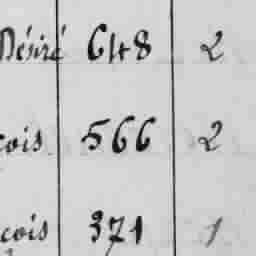 Désiré 648 2
çois 566 2
çois 371 1